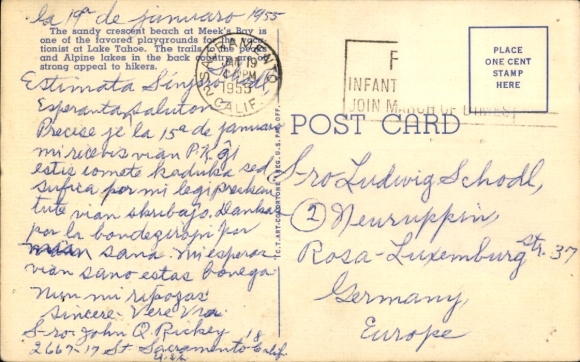 la 19a de januaro 1955
The sandy crescent beach at Meek's Bay is
one of the favored playgrounds for the vaca-
tionist at Lake Tahoe. The trails to the peaks
and Alpine lakes in the back country are of
strong appeal to hikers.
SACRAMENTO
JAN 19
PM
1955
CALIF.
INFANT
JOIN MARCH OF DIMES
PLACE
ONE CENT
STAMP
HERE
Estimata Sinjoro Schodl,
Esperanta Saluton
Precise je la 15a de januaro
mi ricevis vian P.K. Ĝi
estis iomete kaduka sed
sufica por mi legi preskau
tute vian skribajo. Dankas
por la bondeziroj por
sana. Mi esperas
vian sano estas bonega
Nun mi ripozas
Sincere Vere Via
S-ro John Q. Rickey
2667-17 St. Sacramento 18 Calif.
C.T. ART-COLORTONE REG. U.S. PAT. OFF.
POST CARD
S-ro Ludwig Schodl,
(2) Neuruppin,
Rosa-Luxemburg Str. 37
Germany,
Europe